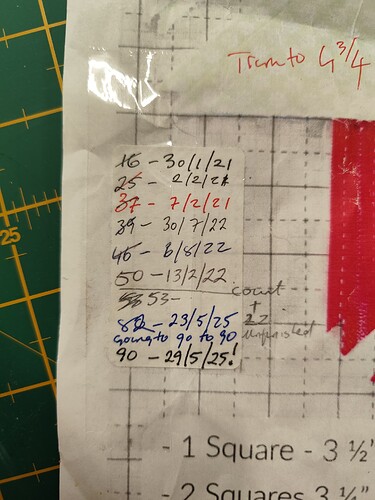 Trim to 4 3/4
16 - 30/1/21
25 - 2/2/21
37 - 7/2/21
39 - 30/7/22
46 - 8/8/22
50 - 13/2/22
53 -
count
+
22
unfinished
82 - 23/5/25
going to go to 90
90 - 29/5/25!
- 1 Square - 3 ½"
- 2 Squares 3 ¼"
25